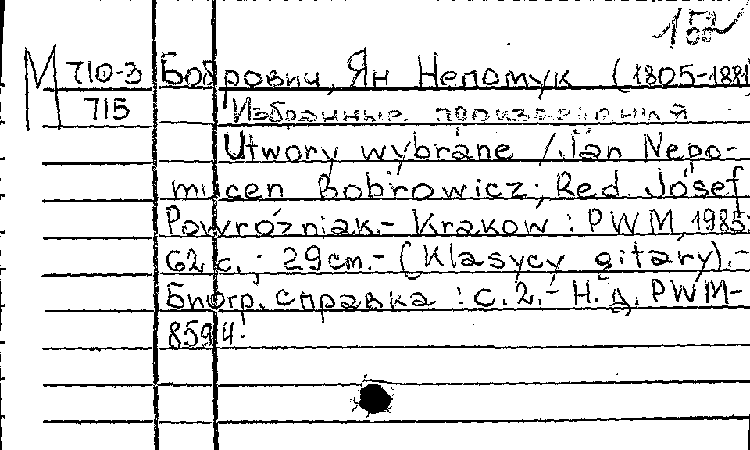 152
М 710-3 Бобрович, Ян Непомук (1805-1881
715 Избранные произведения
Utwory wybrane / Jan Nepo-
mucen Bobrowicz; Red. Józef
Powroźniak.- Krakow : PWM, 1985.
62 с. ; 29 cm.- (Klasycy gitary).-
Биогр. справка : с. 2.- Н. д. PWM-
8594.